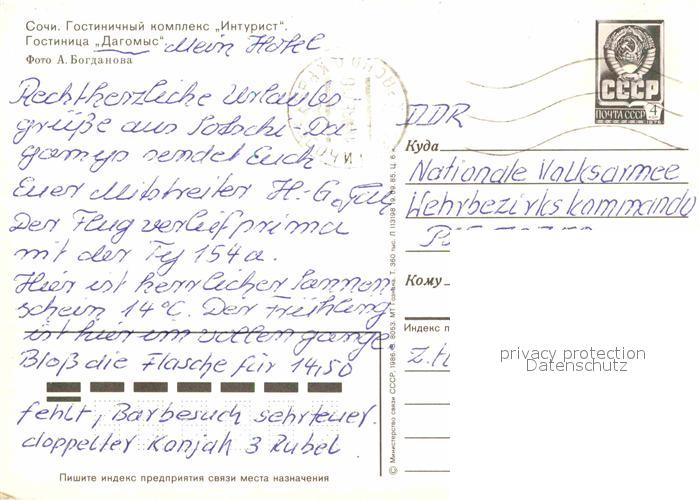 Сочи. Гостиничный комплекс „Интурист".
Гостиница „Дагомыс" Mein Hotel
Фото А. Богданова
Rechtherzliche Urlaubs-
grüße aus Sotschi-Da
gomys sendet Euch
Euer Mitstreiter H.-G.
Der Flug verlief prima
mit der Ty 154 a.
Hier ist herrlicher Sonnen
schein 14°C. Der Frühling
ist hier im vollen gange
Bloß die Flasche für 14,50
fehlt, Barbesuch sehr teuer.
doppelter Konjak 3 Rubel
Пишите индекс предприятия связи места назначения
© Министерство связи СССР. 1986. З. 8053. МТ Гознака. Т. 360 тыс. Л 113198 19.09.85. Ц. 6 к.
СССР
ПОЧТА СССР 4
DDR
Куда
Nationale Volksarmee
Wehrbezirkskommando
Кому
Индекс п
z.H
privacy protection
Datenschutz